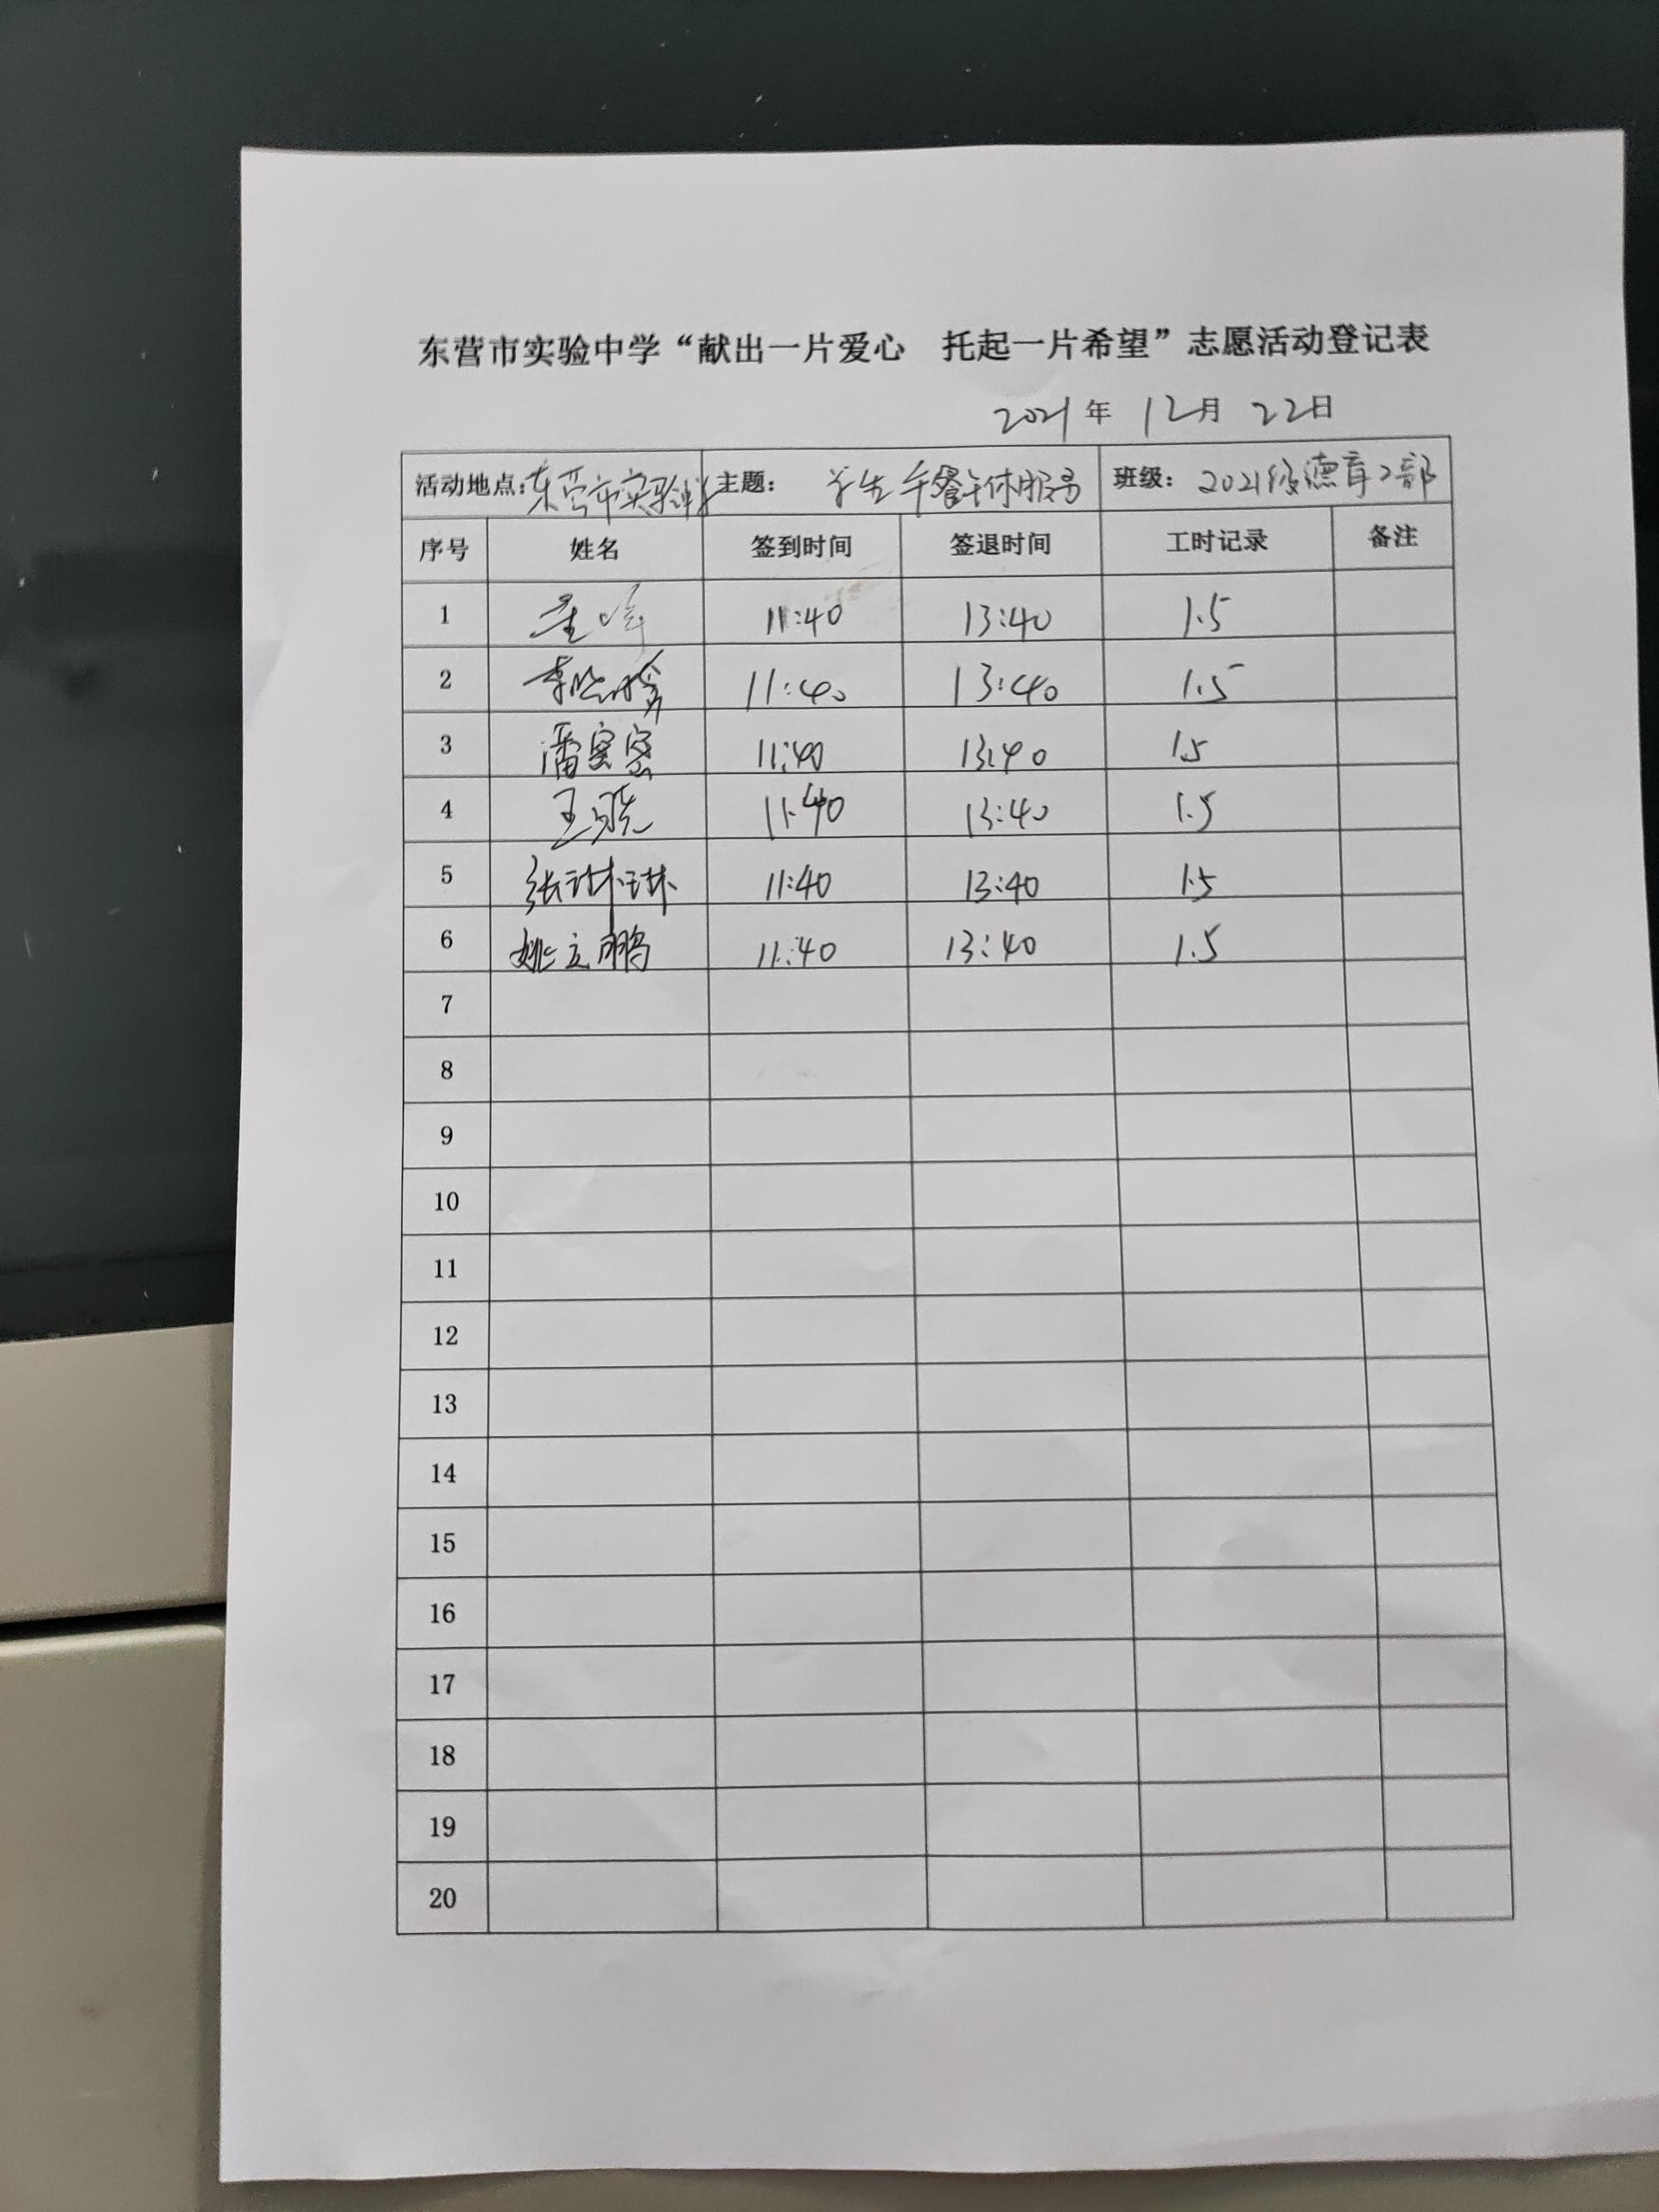 东营市实验中学“献出一片爱心　托起一片希望”志愿活动登记表
2021年 12月 22日
活动地点：东营市实验中学 主题： 学生午餐午休服务 班级： 2021级德育2部
序号 姓名 签到时间 签退时间 工时记录 备注
1 11:40 13:40 1.5
2 李 11:40 13:40 1.5
3 潘蜜蜜 11:40 13:40 1.5
4 王晓 11:40 13:40 1.5
5 张琳琳 11:40 13:40 1.5
6 姚立鹏 11:40 13:40 1.5
7
8
9
10
11
12
13
14
15
16
17
18
19
20